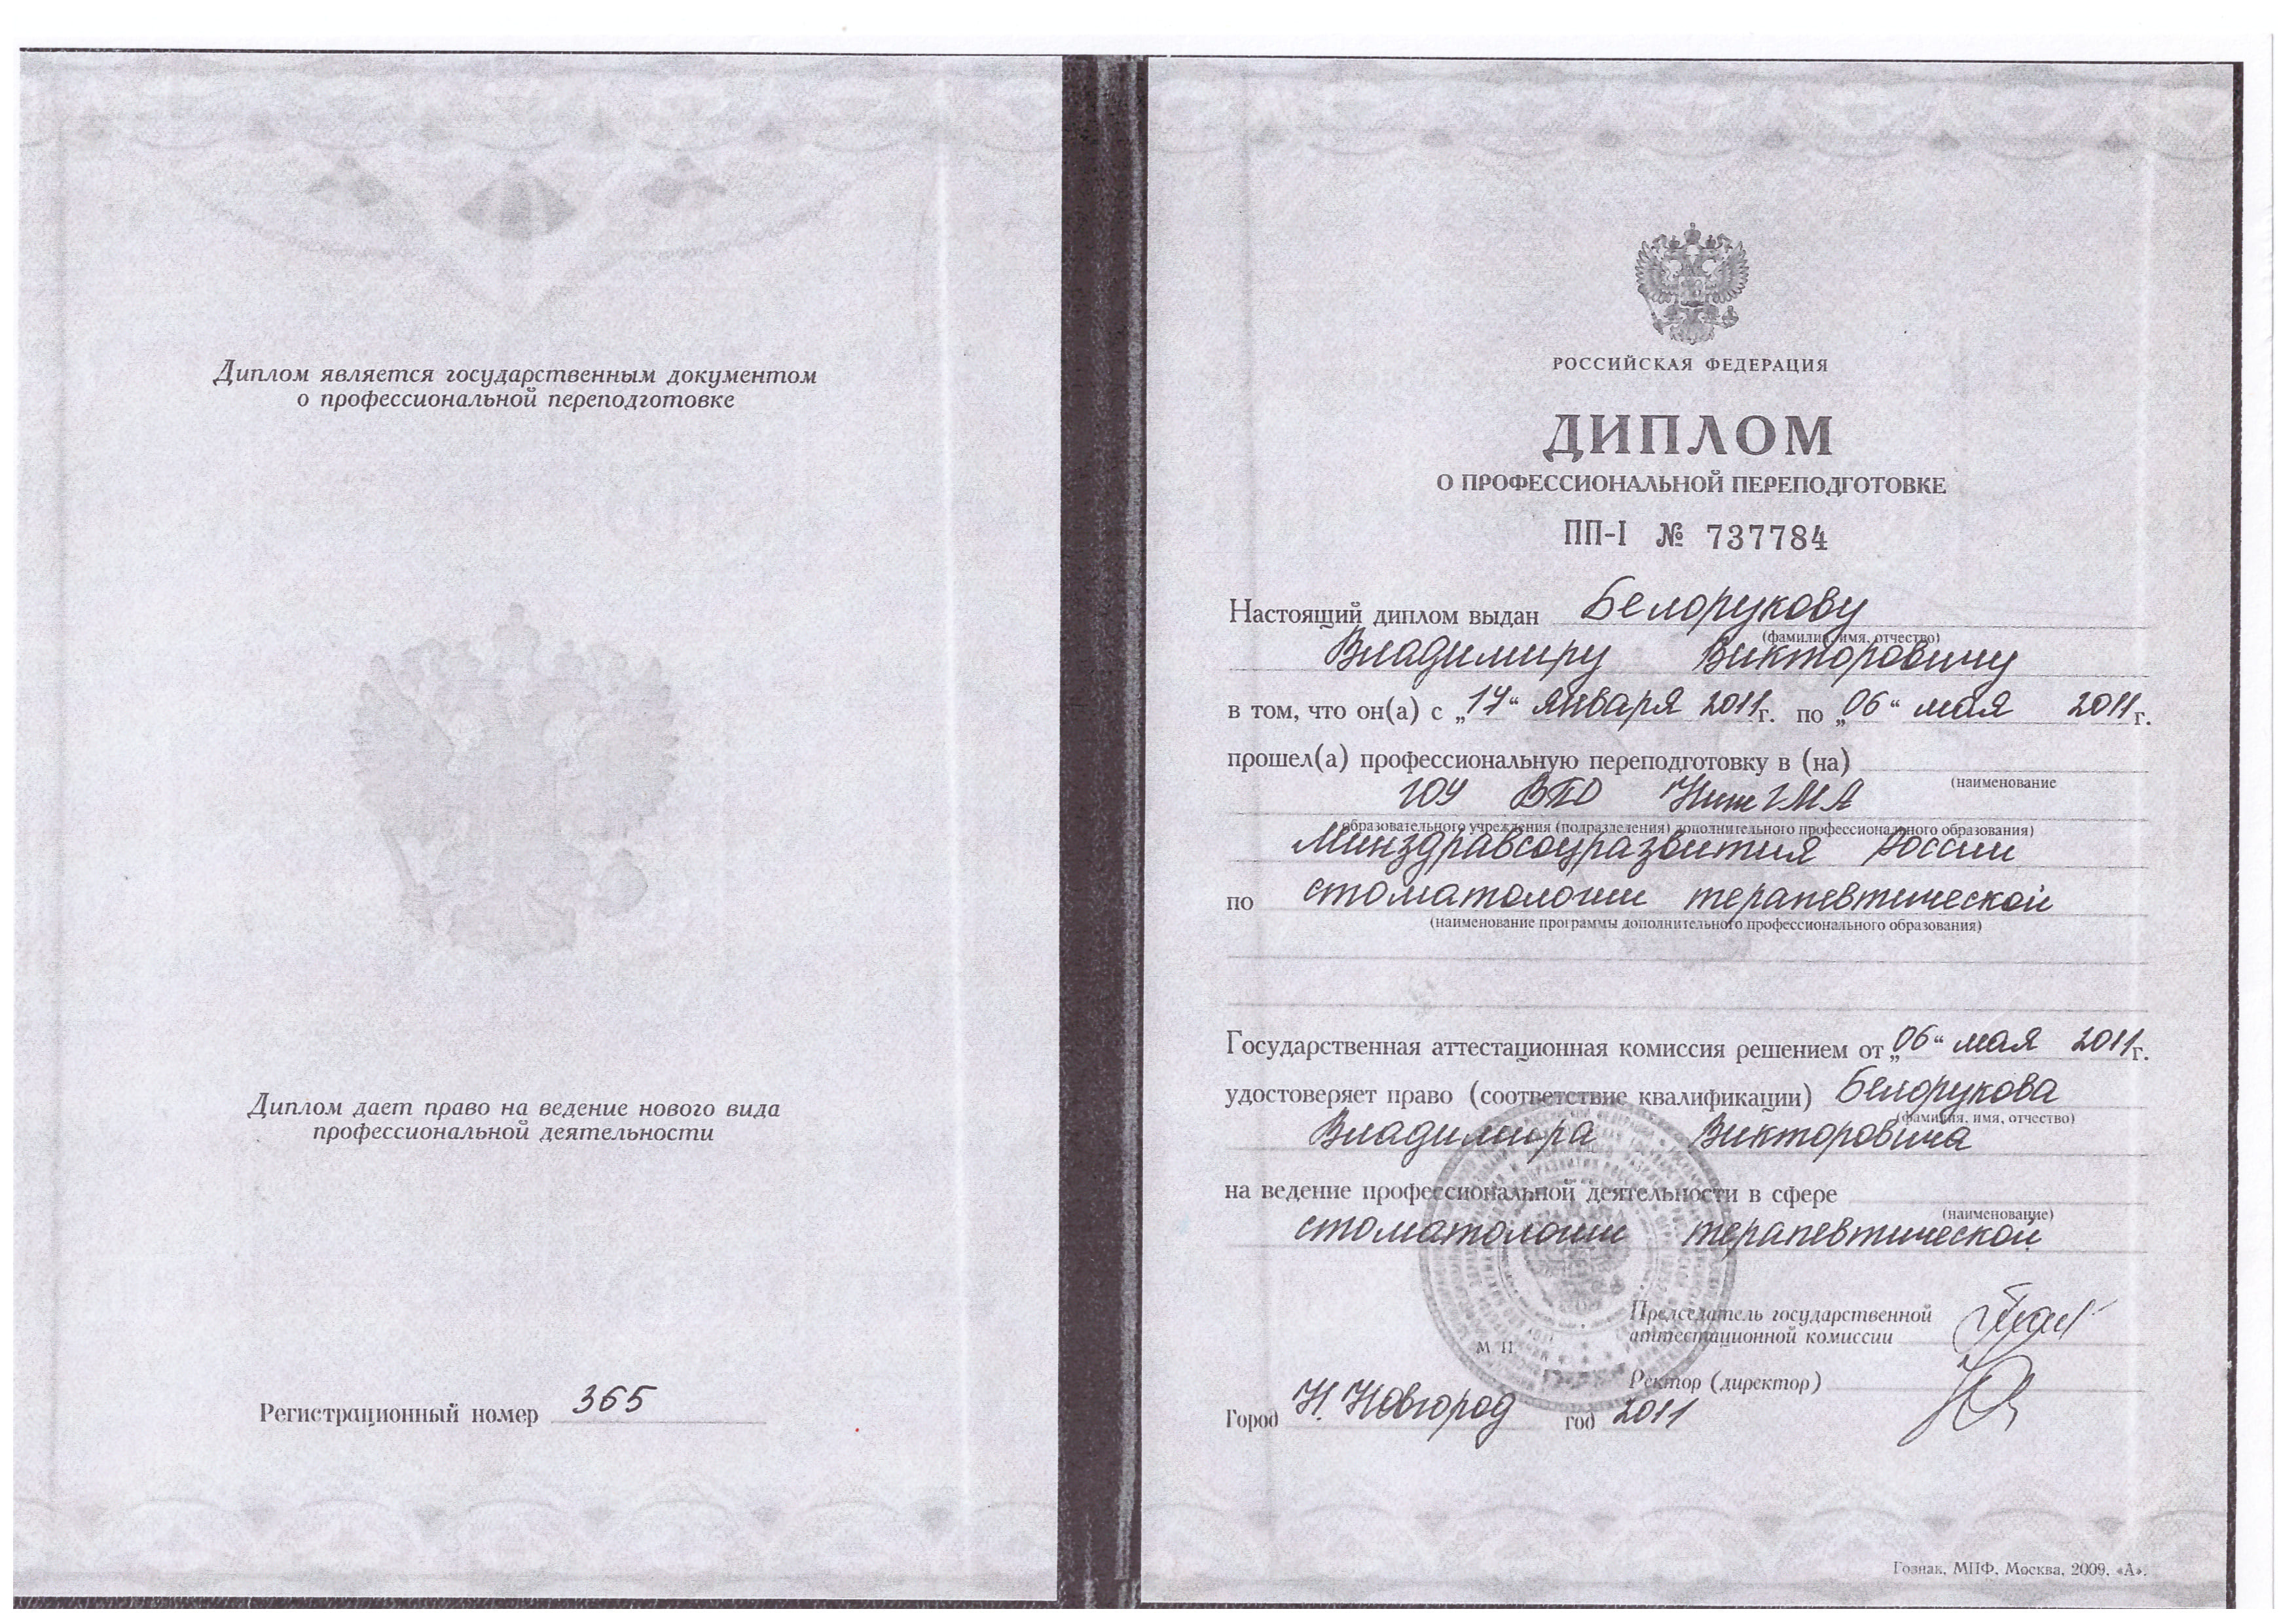 Диплом является государственным документом
о профессиональной переподготовке
Диплом дает право на ведение нового вида
профессиональной деятельности
Регистрационный номер 365
РОССИЙСКАЯ ФЕДЕРАЦИЯ
ДИПЛОМ
О ПРОФЕССИОНАЛЬНОЙ ПЕРЕПОДГОТОВКЕ
ПП-I № 737784
Настоящий диплом выдан Белорукову
(фамилия, имя, отчество)
Владимиру Викторовичу
в том, что он(а) с „17“ января 2011г. по „06“ мая 2011г.
прошел(а) профессиональную переподготовку в (на)
(наименование
ГОУ ВПО НижГМА
образовательного учреждения (подразделения) дополнительного профессионального образования)
Минздравсоцразвития России
по стоматологии терапевтической
(наименование программы дополнительного профессионального образования)
Государственная аттестационная комиссия решением от „06“ мая 2011г.
удостоверяет право (соответствие квалификации) Белорукова
(фамилия, имя, отчество)
Владимира Викторовича
на ведение профессиональной деятельности в сфере
(наименование)
стоматологии терапевтической
Председатель государственной
аттестационной комиссии
М П
Ректор (директор)
Город Н. Новгород год 2011
Гознак, МПФ, Москва, 2009, «А».